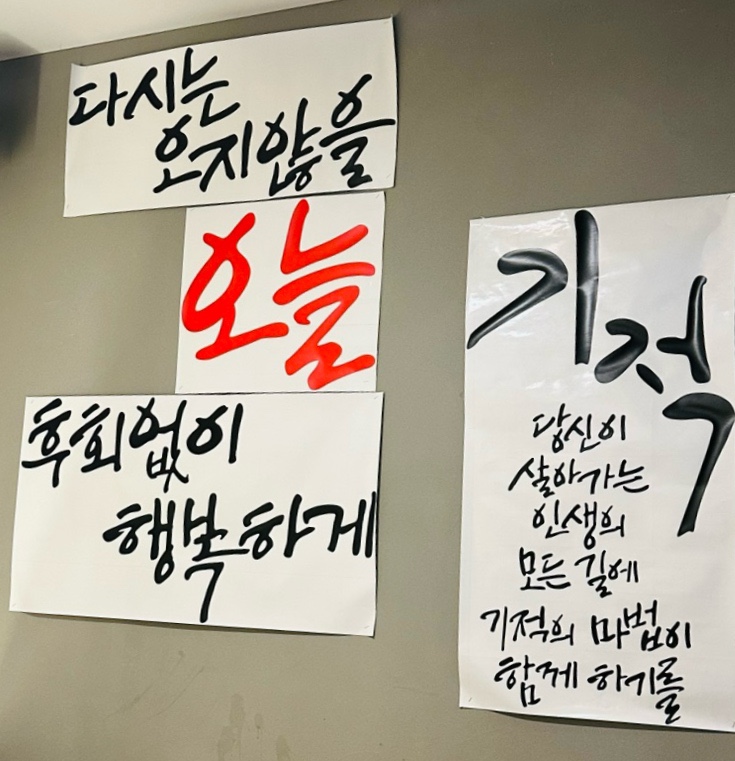 다시는
오지않을
오늘
후회없이
행복하게
기적
당신이
살아가는
인생의
모든 길에
기적의 마법이
함께 하기를